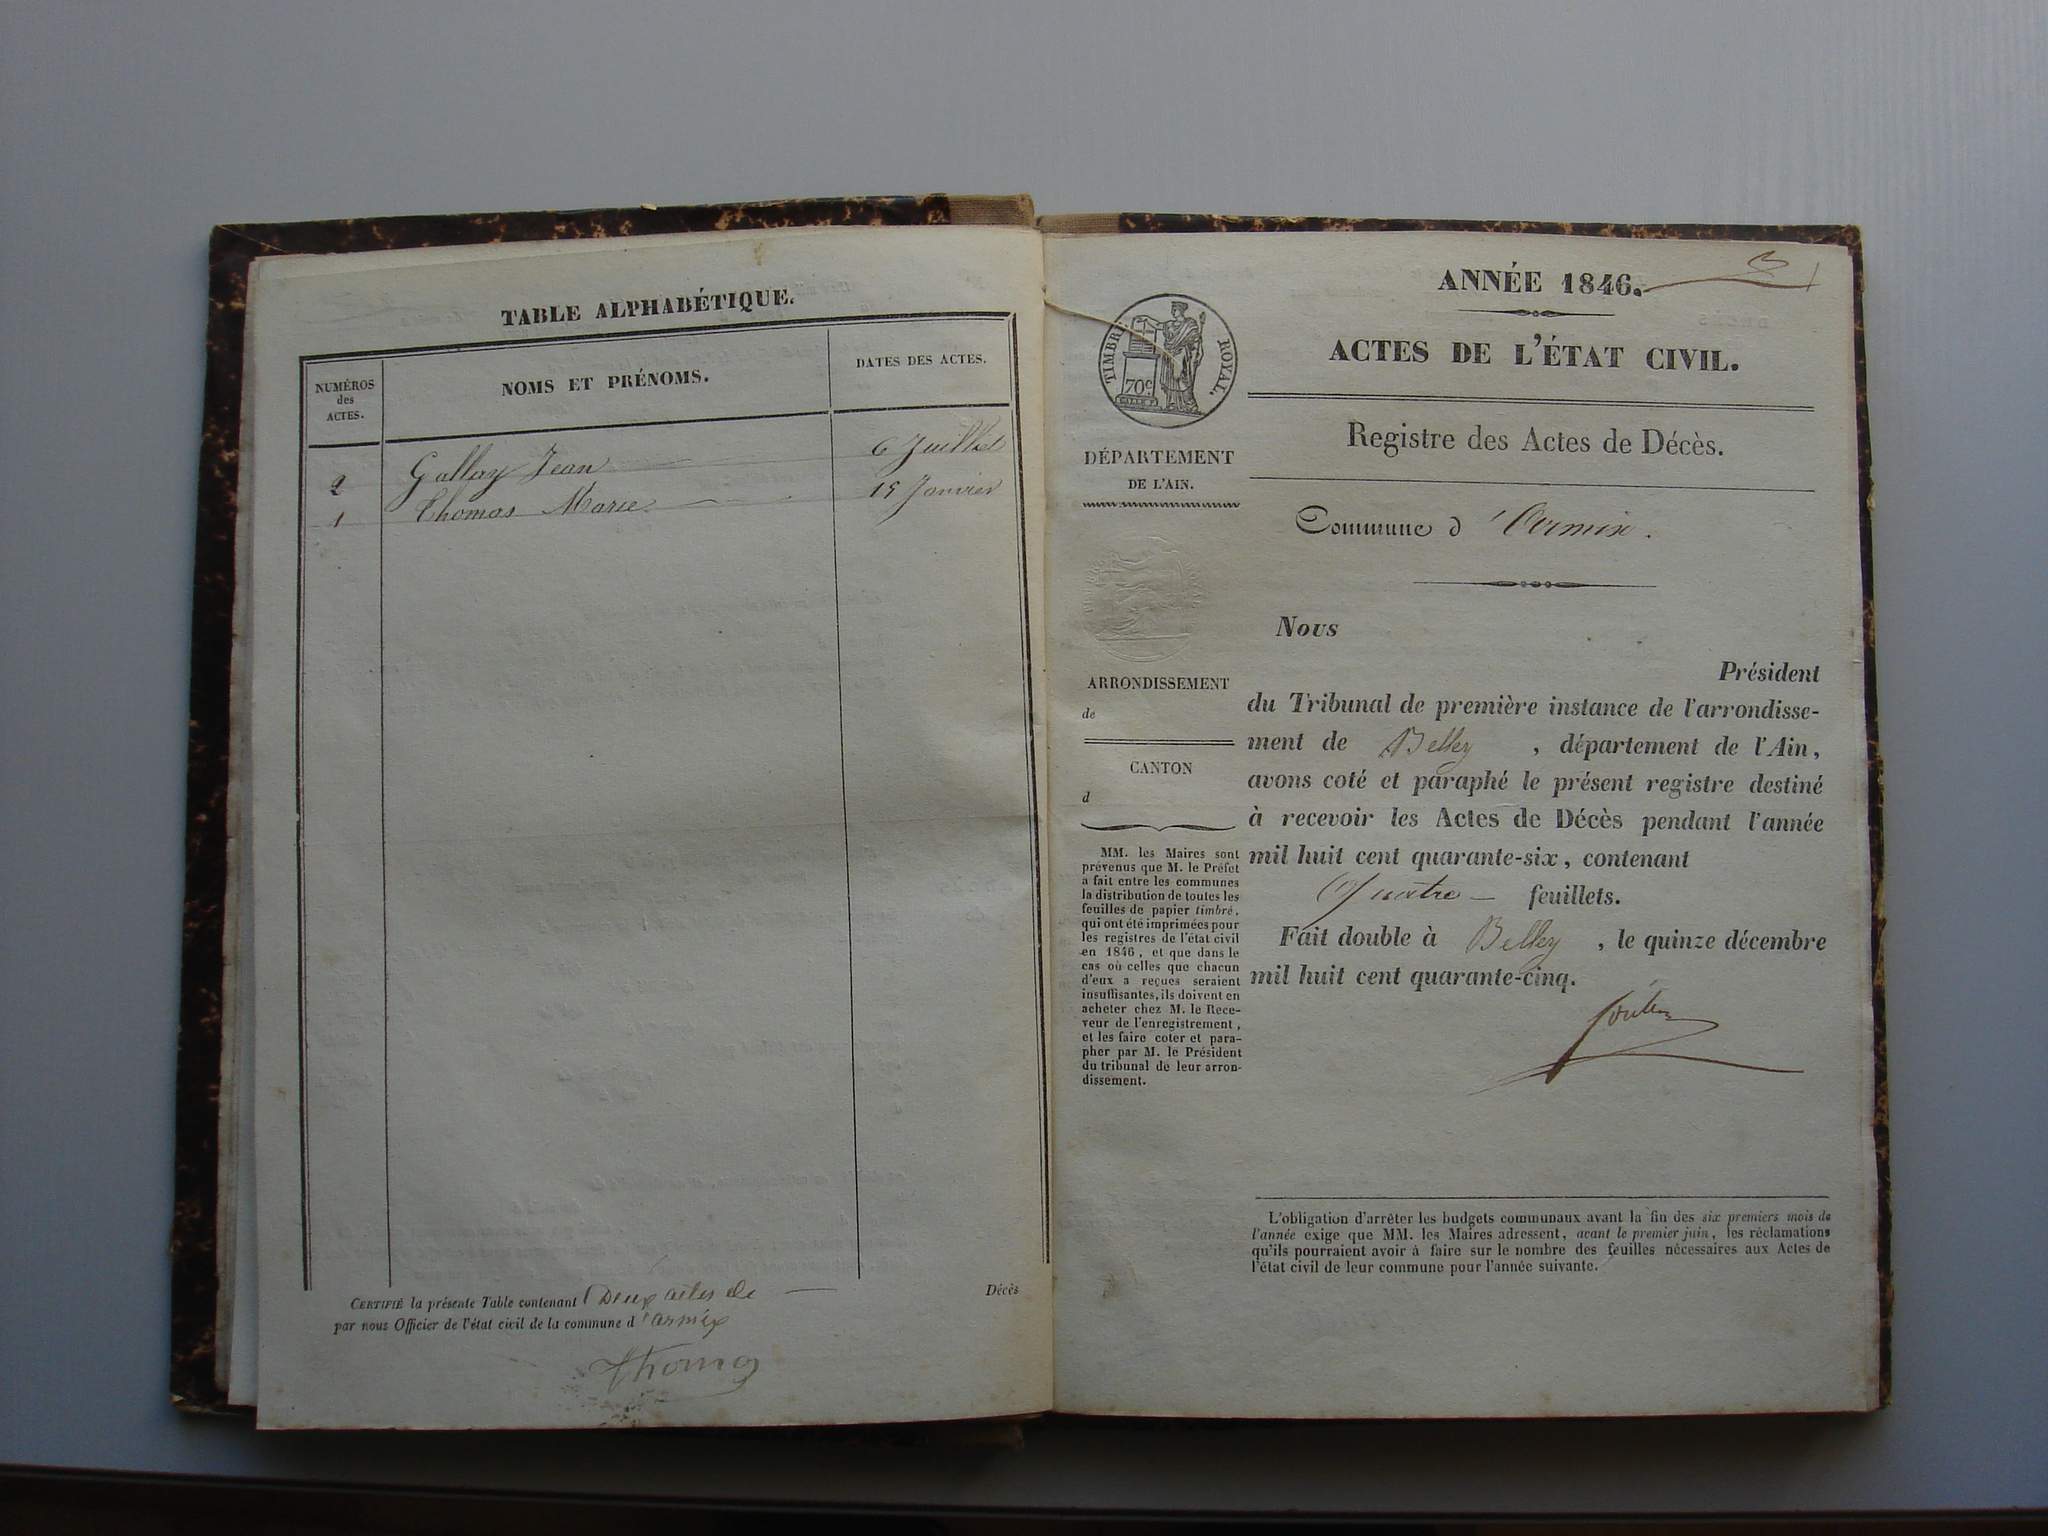 TABLE ALPHABÉTIQUE.
NUMÉROS
des
ACTES.
NOMS ET PRÉNOMS.
DATES DES ACTES.
2 Gallay Jean 6 Juillet
1 Thomas Marie 15 Janvier
CERTIFIÉ la présente Table contenant Deux actes de Décès
par nous Officier de l'état civil de la commune d'armix
Thomas
ANNÉE 1846.
ACTES DE L'ÉTAT CIVIL.
Registre des Actes de Décès.
Commune d'Armix.
TIMBRE ROYAL.
70c
DÉPARTEMENT
DE L'AIN.
ARRONDISSEMENT
de
CANTON
d
MM. les Maires sont
prévenus que M. le Préfet
a fait entre les communes
la distribution de toutes les
feuilles de papier timbré,
qui ont été imprimées pour
les registres de l'état civil
en 1846, et que dans le
cas où celles que chacun
d'eux a reçues seraient
insuffisantes, ils doivent en
acheter chez M. le Rece-
veur de l'enregistrement,
et les faire coter et para-
pher par M. le Président
du tribunal de leur arron-
dissement.
Nous
Président
du Tribunal de première instance de l'arrondisse-
ment de Belley, département de l'Ain,
avons coté et paraphé le présent registre destiné
à recevoir les Actes de Décès pendant l'année
mil huit cent quarante-six, contenant
Quatre — feuillets.
Fait double à Belley, le quinze décembre
mil huit cent quarante-cinq.
L'obligation d'arrêter les budgets communaux avant la fin des six premiers mois de
l'année exige que MM. les Maires adressent, avant le premier juin, les réclamations
qu'ils pourraient avoir à faire sur le nombre des feuilles nécessaires aux Actes de
l'état civil de leur commune pour l'année suivante.